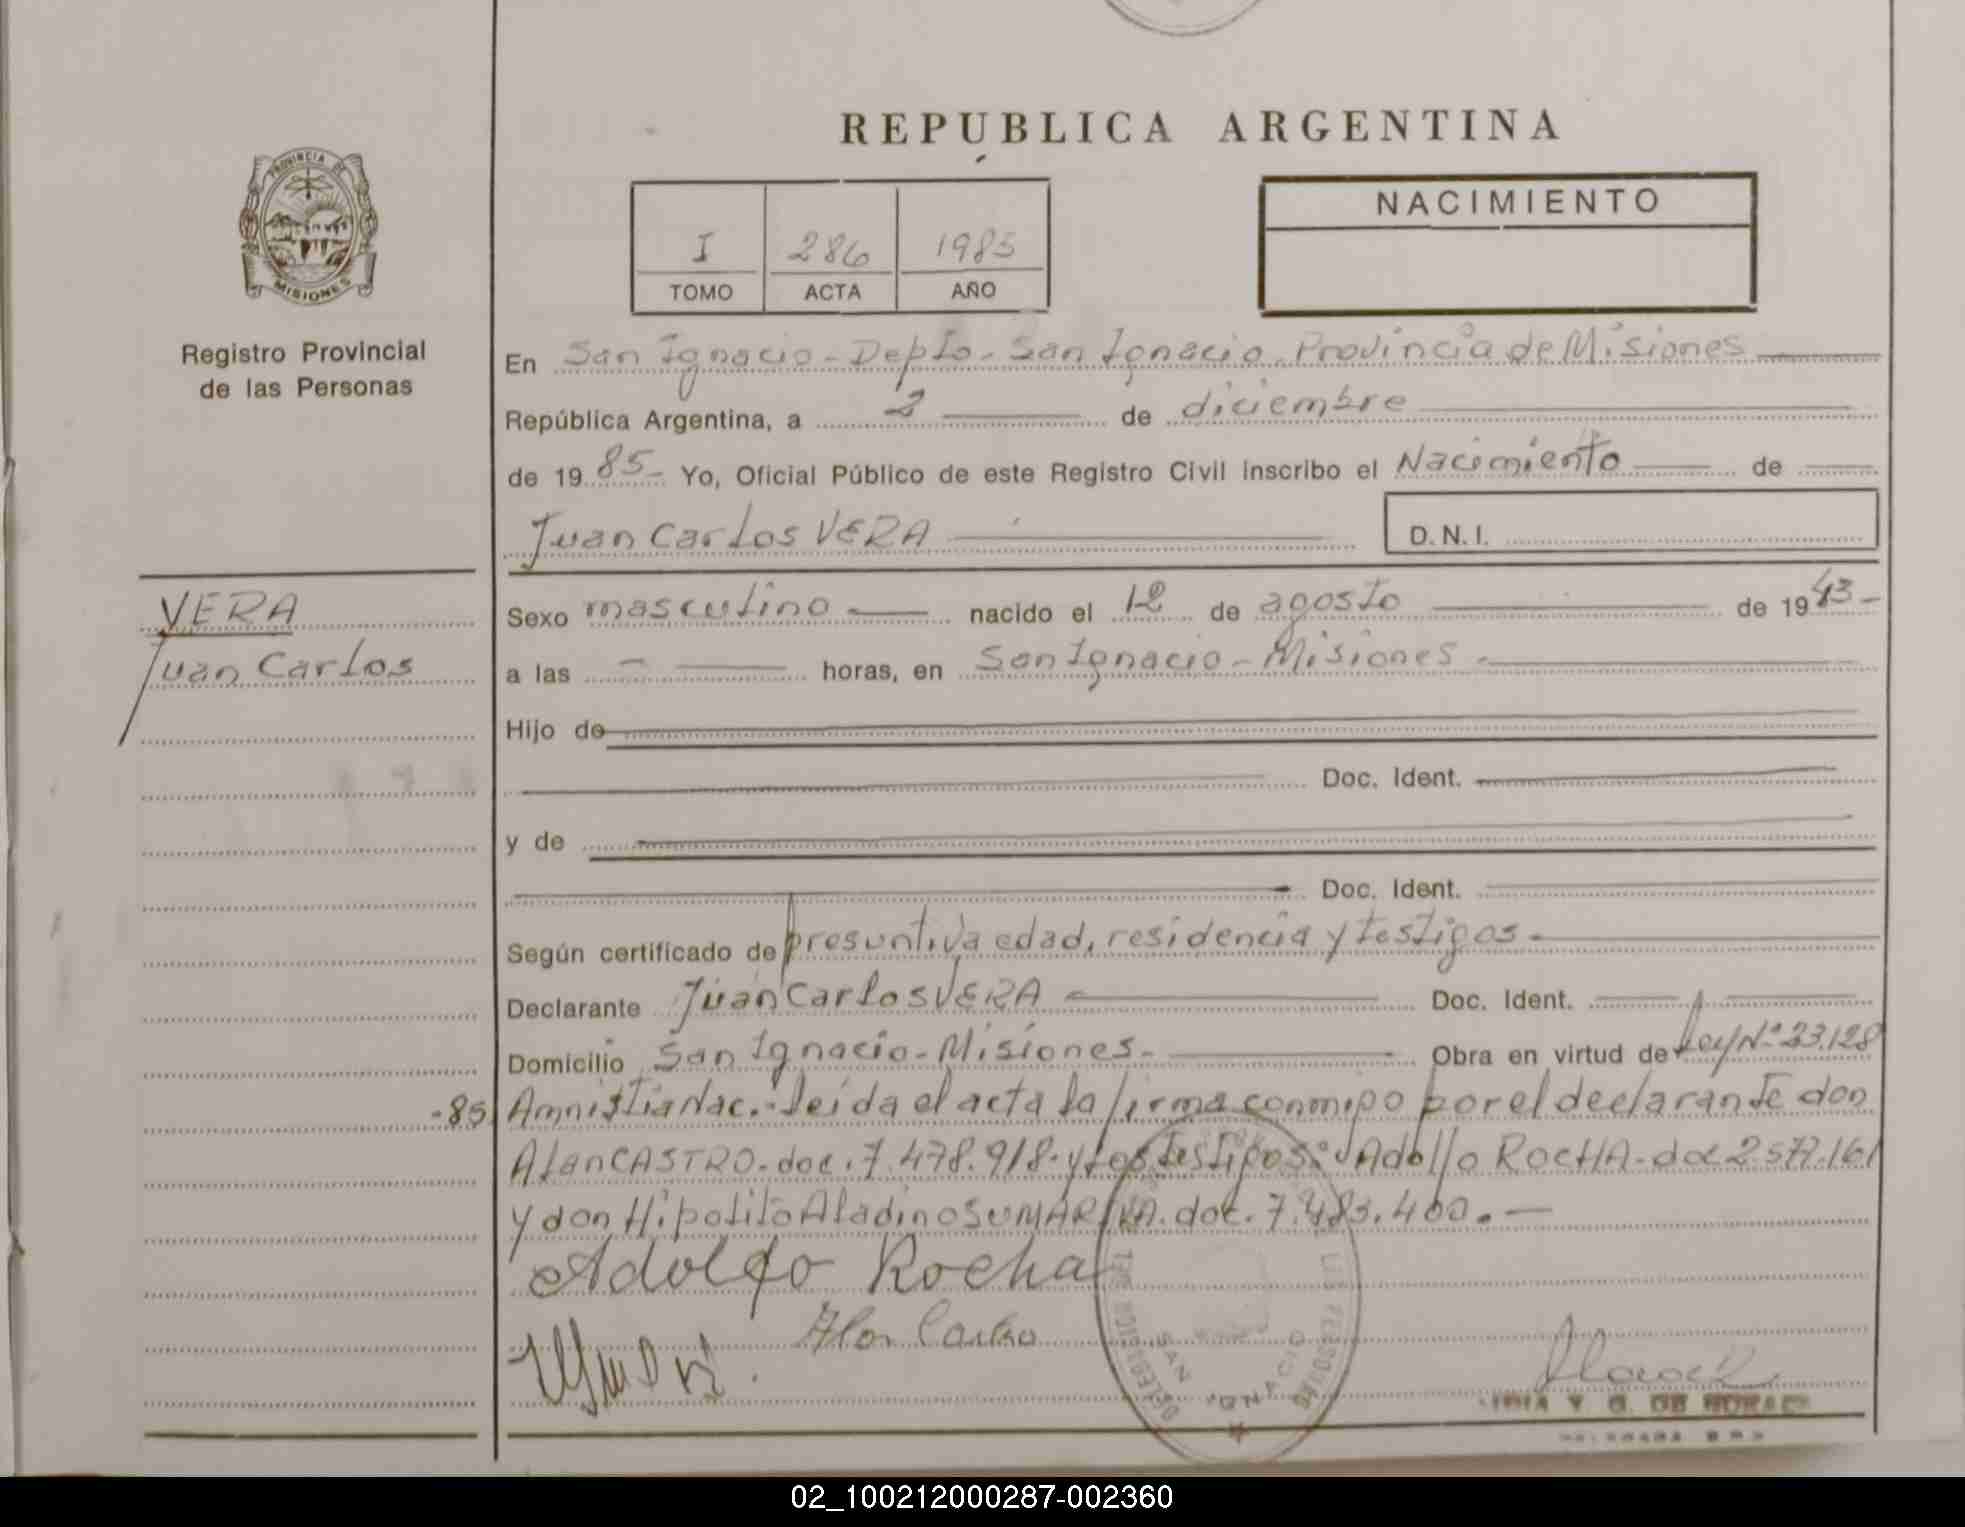 REPUBLICA ARGENTINA
PROVINCIA DE
MISIONES
Registro Provincial
de las Personas
I 286 1985
TOMO ACTA AÑO
NACIMIENTO
En San Ignacio - Depto - San Ignacio - Provincia de Misiones
República Argentina, a 2 de diciembre
de 19 85 - Yo, Oficial Público de este Registro Civil inscribo el Nacimiento de
Juan Carlos VERA D. N. I.
VERA
Juan Carlos
Sexo masculino nacido el 12 de agosto de 19 43 -
a las - horas, en San Ignacio - Misiones -
Hijo de
Doc. Ident.
y de
Doc. Ident.
Según certificado de presuntiva edad, residencia y testigos -
Declarante Juan Carlos VERA - Doc. Ident.
Domicilio San Ignacio - Misiones - Obra en virtud de Ley Nº 23.128
-85 Amnistia Nac. - Leída el acta la firma conmigo por el declarante don
Alan CASTRO - doc. 7.478.918 - y los testigos: Adolfo ROCHA - doc 2.577.161
y don Hipolito Aladino doc. 7.483.400. -
Adolfo Rocha
Castro
SAN IGNACIO
DE
02_100212000287-002360